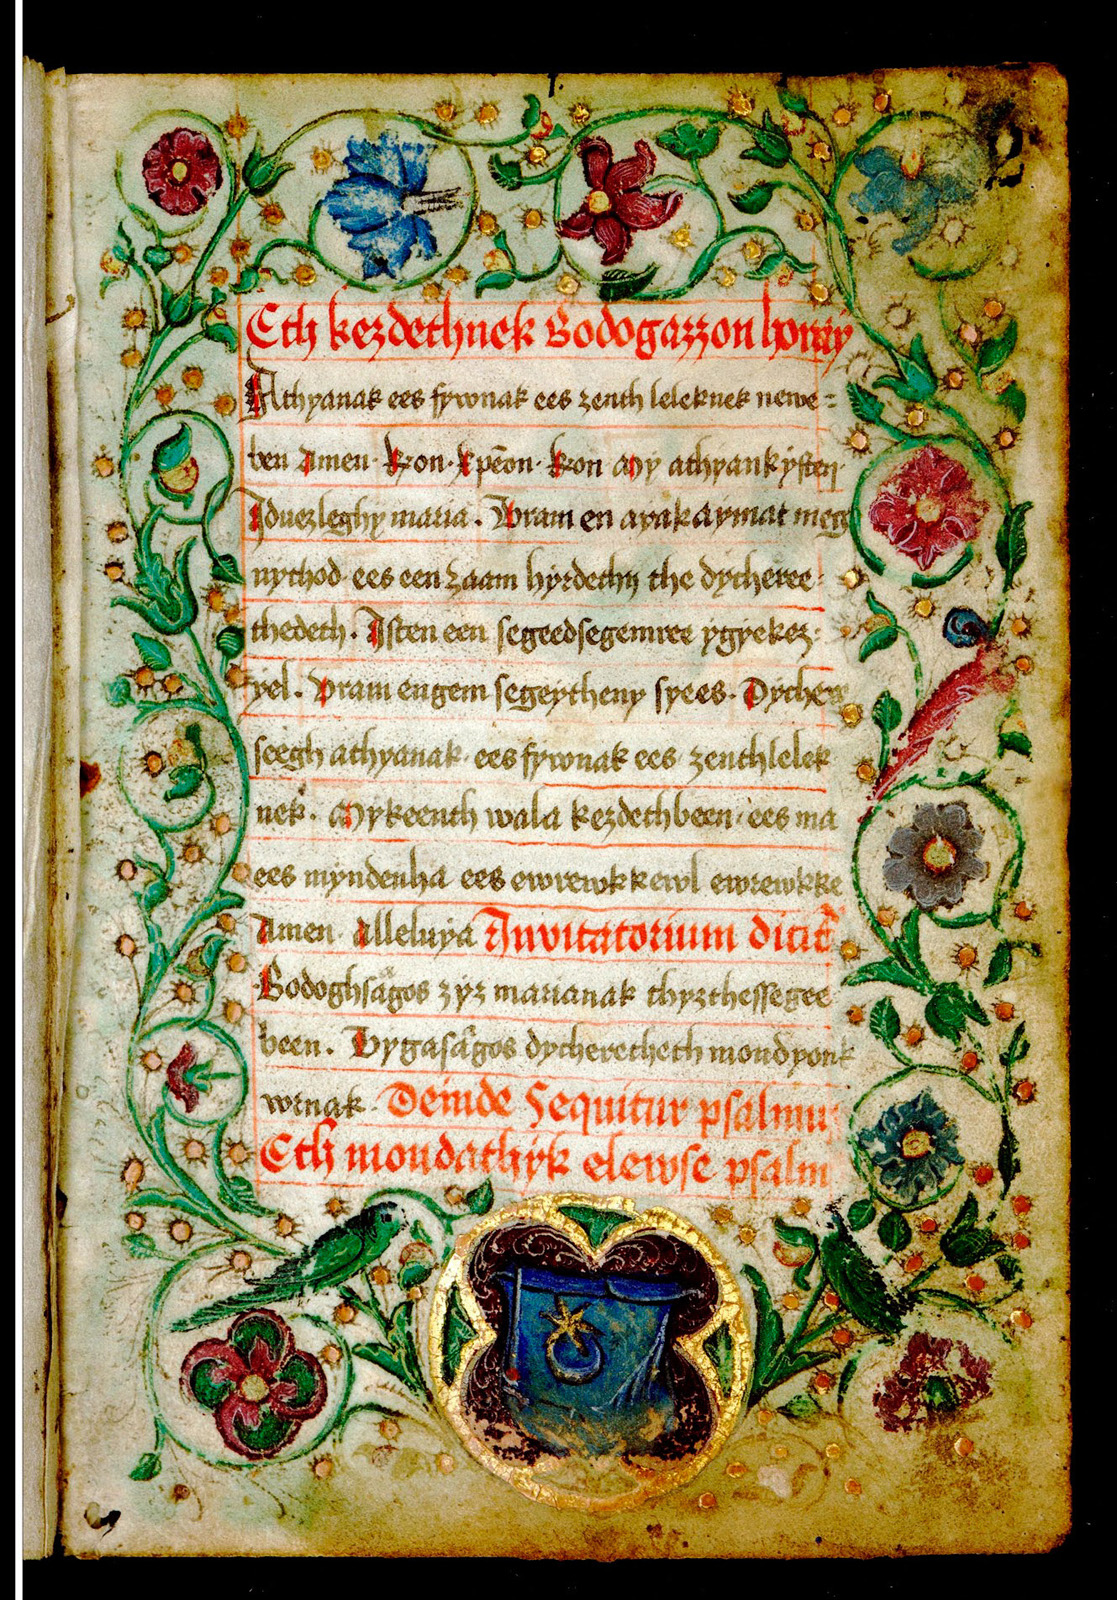 Eth kezdethnek Bodogazzon horay
Athyanak ees fywnak ees zenth leleknek newe=
ben Amen· kyon· xpēon· kyon My athyank ysten·
Iduezleghy maria . Vram en ayakaymat meg
nythod· ees een zaam hyrdethy the dycheree:
thedeth . Isten een segeedsegemree ygyekez:
yel . Vram engem segeytheny syees . Dychew
seegh athyanak· ees fywnak ees· zenth lelek
nek . Mykeenth wala kezdethbeen· ees ma
ees myndenha ees ewrewkkewl ewrewkke
Amen· Alleluya Invitatorium dicit᷑
Bodoghsāgos zyz marianak thyzthessegee
been . Hygasāgos dycheretheth mondyonk
wrnak· Deinde Sequitur psalmus
Eth mondathyk elewse psalm